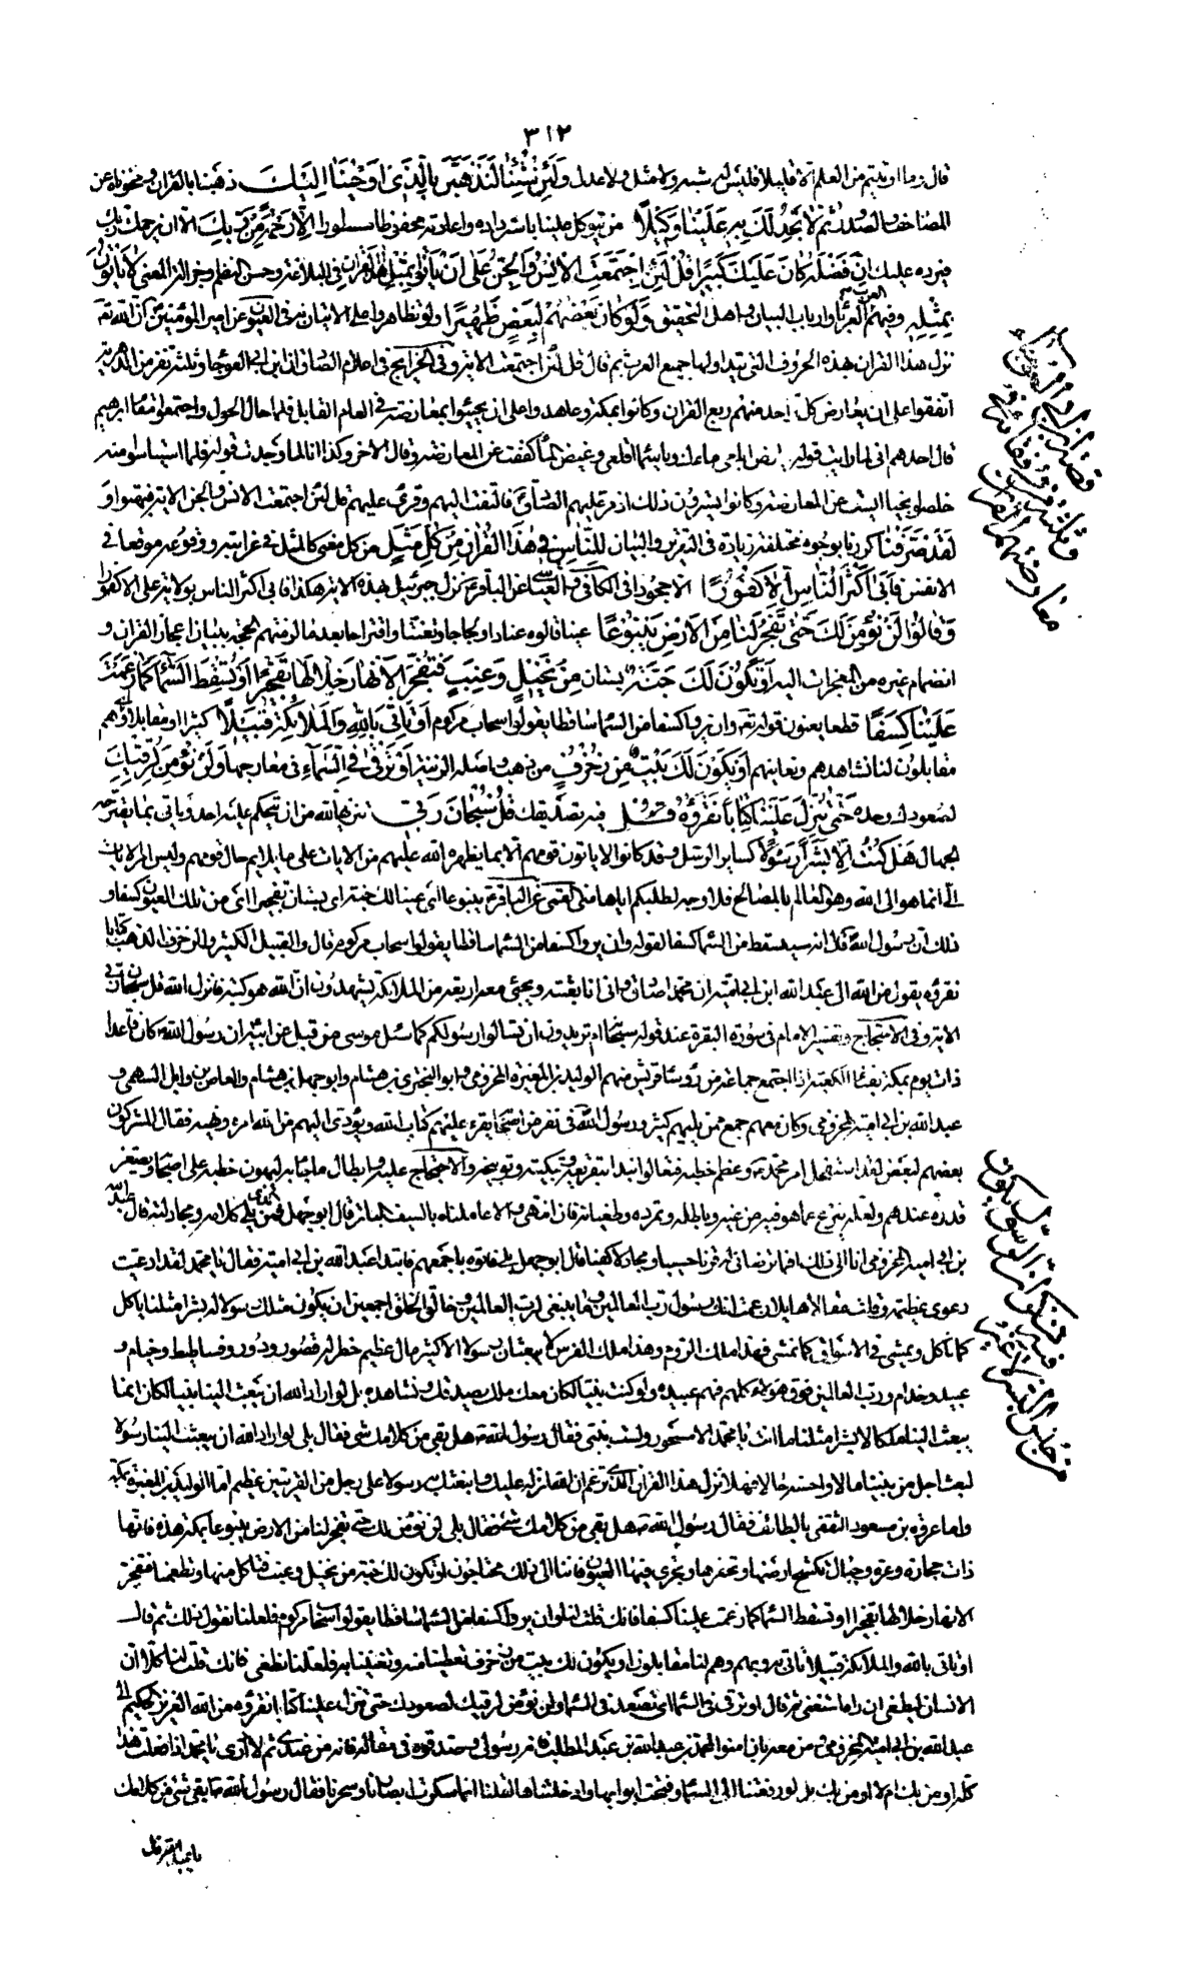 ٣١٢
قال وما اوتيتم من العلم الا قليلا فليس له شبه ولا مثل ولا عدل وَلَئِنْ شِئْنا لَنَذْهَبَنَّ بِالَّذِي اَوْحَيْنا اِلَيْكَ ذهبنا بالقران ومحوناه عن
المصاحف والصدور ثُمَّ لا تَجِدُ لَكَ بِهِ عَلَيْنا وَكِيلًا من يتوكل علينا باسترداده واعادته محفوظا مسطورا اِلّا رَحْمَةً مِنْ رَبِّكَ الا ان يرحمك ربك
فيرده عليك اِنَّ فَضْلَهُ كانَ عَلَيْكَ كَبِيرًا قُلْ لَئِنِ اجْتَمَعَتِ الْاِنْسُ وَالْجِنُّ عَلى اَنْ يَأْتُوا بِمِثْلِ هذَا الْقُرْانِ في البلاغة وحسن النظم وجزالة المعنى لا يَأْتُونَ
بِمِثْلِهِ وفيهم العرب العرباء وارباب البيان واهل التحقيق وَلَوْ كانَ بَعْضُهُمْ لِبَعْضٍ ظَهِيرًا ولو تظاهروا على الاتيان به في العيون عن امير المؤمنين ان الله تعـ
نزل هذا القران بهذه الحروف التي يتداولها جميع العرب ثم قال قل لئن اجتمعت الاية وفي الخرايج في اعلام الصادق ان ابن ابي العوجا وثلثة نفر من الدهرية
اتفقوا على ان يعارض كل احد منهم ربع القران وكانوا بمكة وعاهدوا على ان يجيئوا بمعارضته في العام القابل فلما حال الحول واجتمعوا في مقام ابرهيم
قال احدهم اني لما رايت قوله يا ارض ابلعي ماءك ويا سماء اقلعي وغيض الماء كففت عن المعارضة وقال الاخر وكذا انا لما وجدت قوله فلما استيئسوا منه
خلصوا نجيا ايست عن المعارضة وكانوا يسترون ذلك اذ مر عليهم الصادق فالتفت اليهم وقرء عليهم قل لئن اجتمعت الانس والجن الاية فبهتوا وَ
لَقَدْ صَرَّفْنا كررنا بوجوه مختلفة زيادة في التقرير والبيان لِلنّاسِ في هذَا الْقُرْانِ مِنْ كُلِّ مَثَلٍ من كل معنى كالمثل في غرابته ووقوعه موقعا في
الانفس فَاَبى اَكْثَرُ النّاسِ اِلّا كُفُورًا الا جحودا في الكافي والعياشي عن الباقر نزل جبرئيل بهذه الاية هكذا فابى اكثر الناس بولاية علي الا كفورا
وَقالُوا لَنْ نُؤْمِنَ لَكَ حَتّى تَفْجُرَ لَنا مِنَ الْاَرْضِ يَنْبُوعًا عينا قالوه عنادا ولجاجا وتعنتا واقتراحا بعد ما لزمتهم الحجة ببيان اعجاز القران و
انضمام غيره من المعجزات اليه اَوْ تَكُونَ لَكَ جَنَّةٌ بستان مِنْ نَخِيلٍ وَعِنَبٍ فَتُفَجِّرَ الْاَنْهارَ خِلالَها تَفْجِيرًا اَوْ تُسْقِطَ السَّماءَ كَما زَعَمْتَ
عَلَيْنا كِسَفًا قطعا يعنون قوله تعـ وان يروا كسفا من السماء ساقطا يقولوا سحاب مركوم اَوْ تَأْتِيَ بِاللهِ وَالْمَلائِكَةِ قَبِيلًا كثيرا او مقابلا اي وهم
مقابلون لنا نشاهدهم ونعاينهم اَوْ يَكُونَ لَكَ بَيْتٌ مِنْ زُخْرُفٍ من ذهب واصله الزينة اَوْ تَرْقى فِي السَّماءِ في معارجها وَلَنْ نُؤْمِنَ لِرُقِيِّكَ
لصعودك وحده حَتّى تُنَزِّلَ عَلَيْنا كِتابًا نَقْرَؤُهُ فيه تصديقك قُلْ سُبْحانَ رَبّي تنزيها لله من ان يتحكم عليه احد وياتي بما يقترحه
الجهال هَلْ كُنْتُ اِلّا بَشَرًا رَسُولًا كساير الرسل وقد كانوا لا ياتون قومهم الا بما يظهره الله عليهم من الايات على ما يلايم حال قومهم وليس امر الايات
الي انما هو الى الله وهو العالم بالمصالح فلا وجه لطلبكم اياها مني القمي عن الباقر ينبوعا اي عينا لك جنة اي بستان تفجيرا اي من تلك العيون كسفا و
ذلك ان رسول الله قال انه سيسقط من السماء كسفا لقوله وان يروا كسفا من السماء ساقطا يقولوا سحاب مركوم قال والقبيل الكثير والزخرف الذهب كتابا
نقرؤه يقول من الله الى عبد الله ابن ابي امية ان محمدا صادق واني انا بعثته ويجيئ معه اربعة من الملائكة يشهدون ان الله هو كتبه فانزل الله قل سبحان ربي
الاية وفي الاحتجاج وتفسير الامام في سورة البقرة عند قوله سبحانه ام تريدون ان تسالوا رسولكم كما سئل موسى من قبل عن ابيه ان رسول الله كان قاعدا
ذات يوم بمكة بفناء الكعبة اذ اجتمع جماعة من رؤساء قريش منهم الوليد بن المغيرة المخزومي وابو البختري بن هشام وابو جهل بن هشام والعاص بن وايل السهمي و
عبد الله بن ابي امية المخزومي وكان معهم جمع ممن يليهم كثير ورسول الله في نفر من اصحابه يقرء عليهم كتاب الله ويؤدي اليهم من الله امره ونهيه فقال المشركون
بعضهم لبعض لقد استفحل امر محمد وعظم خطبه فتعالوا نبدا بتقريعه وتبكيته وتوبيخه والاحتجاج عليه وابطال ما جاء به ليهون خطبه على اصحابه ويصغر
قدره عندهم ولعله ينزع عما هو فيه من غيه وباطله وتمرده وطغيانه فان انتهى والا عاملناه بالسيف الباتر قال ابو جهل فمن الذي يلي كلامه ومجادلته قال عبد الله
بن ابي امية المخزومي انا الى ذلك افما ترضاني له قرنا حسيبا ومجادلا كفيا قال ابو جهل بلى فاتوه باجمعهم فابتدا عبد الله بن ابي امية فقال يا محمد لقد ادعيت
دعوى عظيمة وقلت مقالا هايلا زعمت انك رسول رب العالمين وما ينبغي لرب العالمين وخالق الخلق اجمعين ان يكون مثلك رسولا له بشرا مثلنا ياكل
كما ناكل ويمشي في الاسواق كما نمشي فهذا ملك الروم وهذا ملك الفرس لا يبعثان رسولا الا كثير مال عظيم خطر له قصور ودور وفساطيط وخيام و
عبيد وخدام ورب العالمين فوق هؤلاء كلهم فهم عبيده ولو كنت نبيا لكان معك ملك يصدقك ونشاهده بل لو اراد الله ان يبعث الينا نبيا لكان انما
يبعث الينا ملكا لا بشرا مثلنا ما انت يا محمد الا مسحور ولست بنبي فقال رسول الله هل بقي من كلامك شيء فقال بلى لو اراد الله ان يبعث الينا رسولا
لبعث اجل من بيننا مالا واحسنه حالا فهلا نزل هذا القران الذي تزعم ان الله انزله عليك وابتعثك به رسولا على رجل من القريتين عظيم اما الوليد بن المغيرة بمكة
واما عروة بن مسعود الثقفي بالطائف فقال رسول الله هل بقي من كلامك شيء فقال بلى لن نؤمن لك حتى تفجر لنا من الارض ينبوعا بمكة هذه فانها
ذات حجارة وعرة وجبال تكسح ارضها وتحفرها وتجري فيها العيون فاننا الى ذلك محتاجون او تكون لك جنة من نخيل وعنب فتاكل منها وتطعمنا فتفجر
الانهار خلالها تفجيرا او تسقط السماء كما زعمت علينا كسفا فانك قلت لنا وان يروا كسفا من السماء ساقطا يقولوا سحاب مركوم فلعلنا نقول ذلك ثم قال
او تاتي بالله والملائكة قبيلا تاتي به وبهم وهم لنا مقابلون او يكون لك بيت من زخرف تعطينا منه وتغنينا به فلعلنا نطغى فانك قلت لنا كلا ان
الانسان ليطغى ان راه استغنى ثم قال او ترقى في السماء اي تصعد في السماء ولن نؤمن لرقيك لصعودك حتى تنزل علينا كتابا نقرؤه من الله العزيز الحكيم الى
عبد الله بن ابي امية المخزومي ومن معه بان امنوا بمحمد بن عبد الله بن عبد المطلب فانه رسولي وصدقوه في مقاله فانه من عندي ثم لا ادري يا محمد اذا فعلت هذا
كله اومن بك ام لا اومن بك بل لو رفعتنا الى السماء وفتحت ابوابها وادخلتناها لقلنا انما سكرت ابصارنا وسحرتنا فقال رسول الله ما بقي شيء من كلامك
يا عبد الله قال